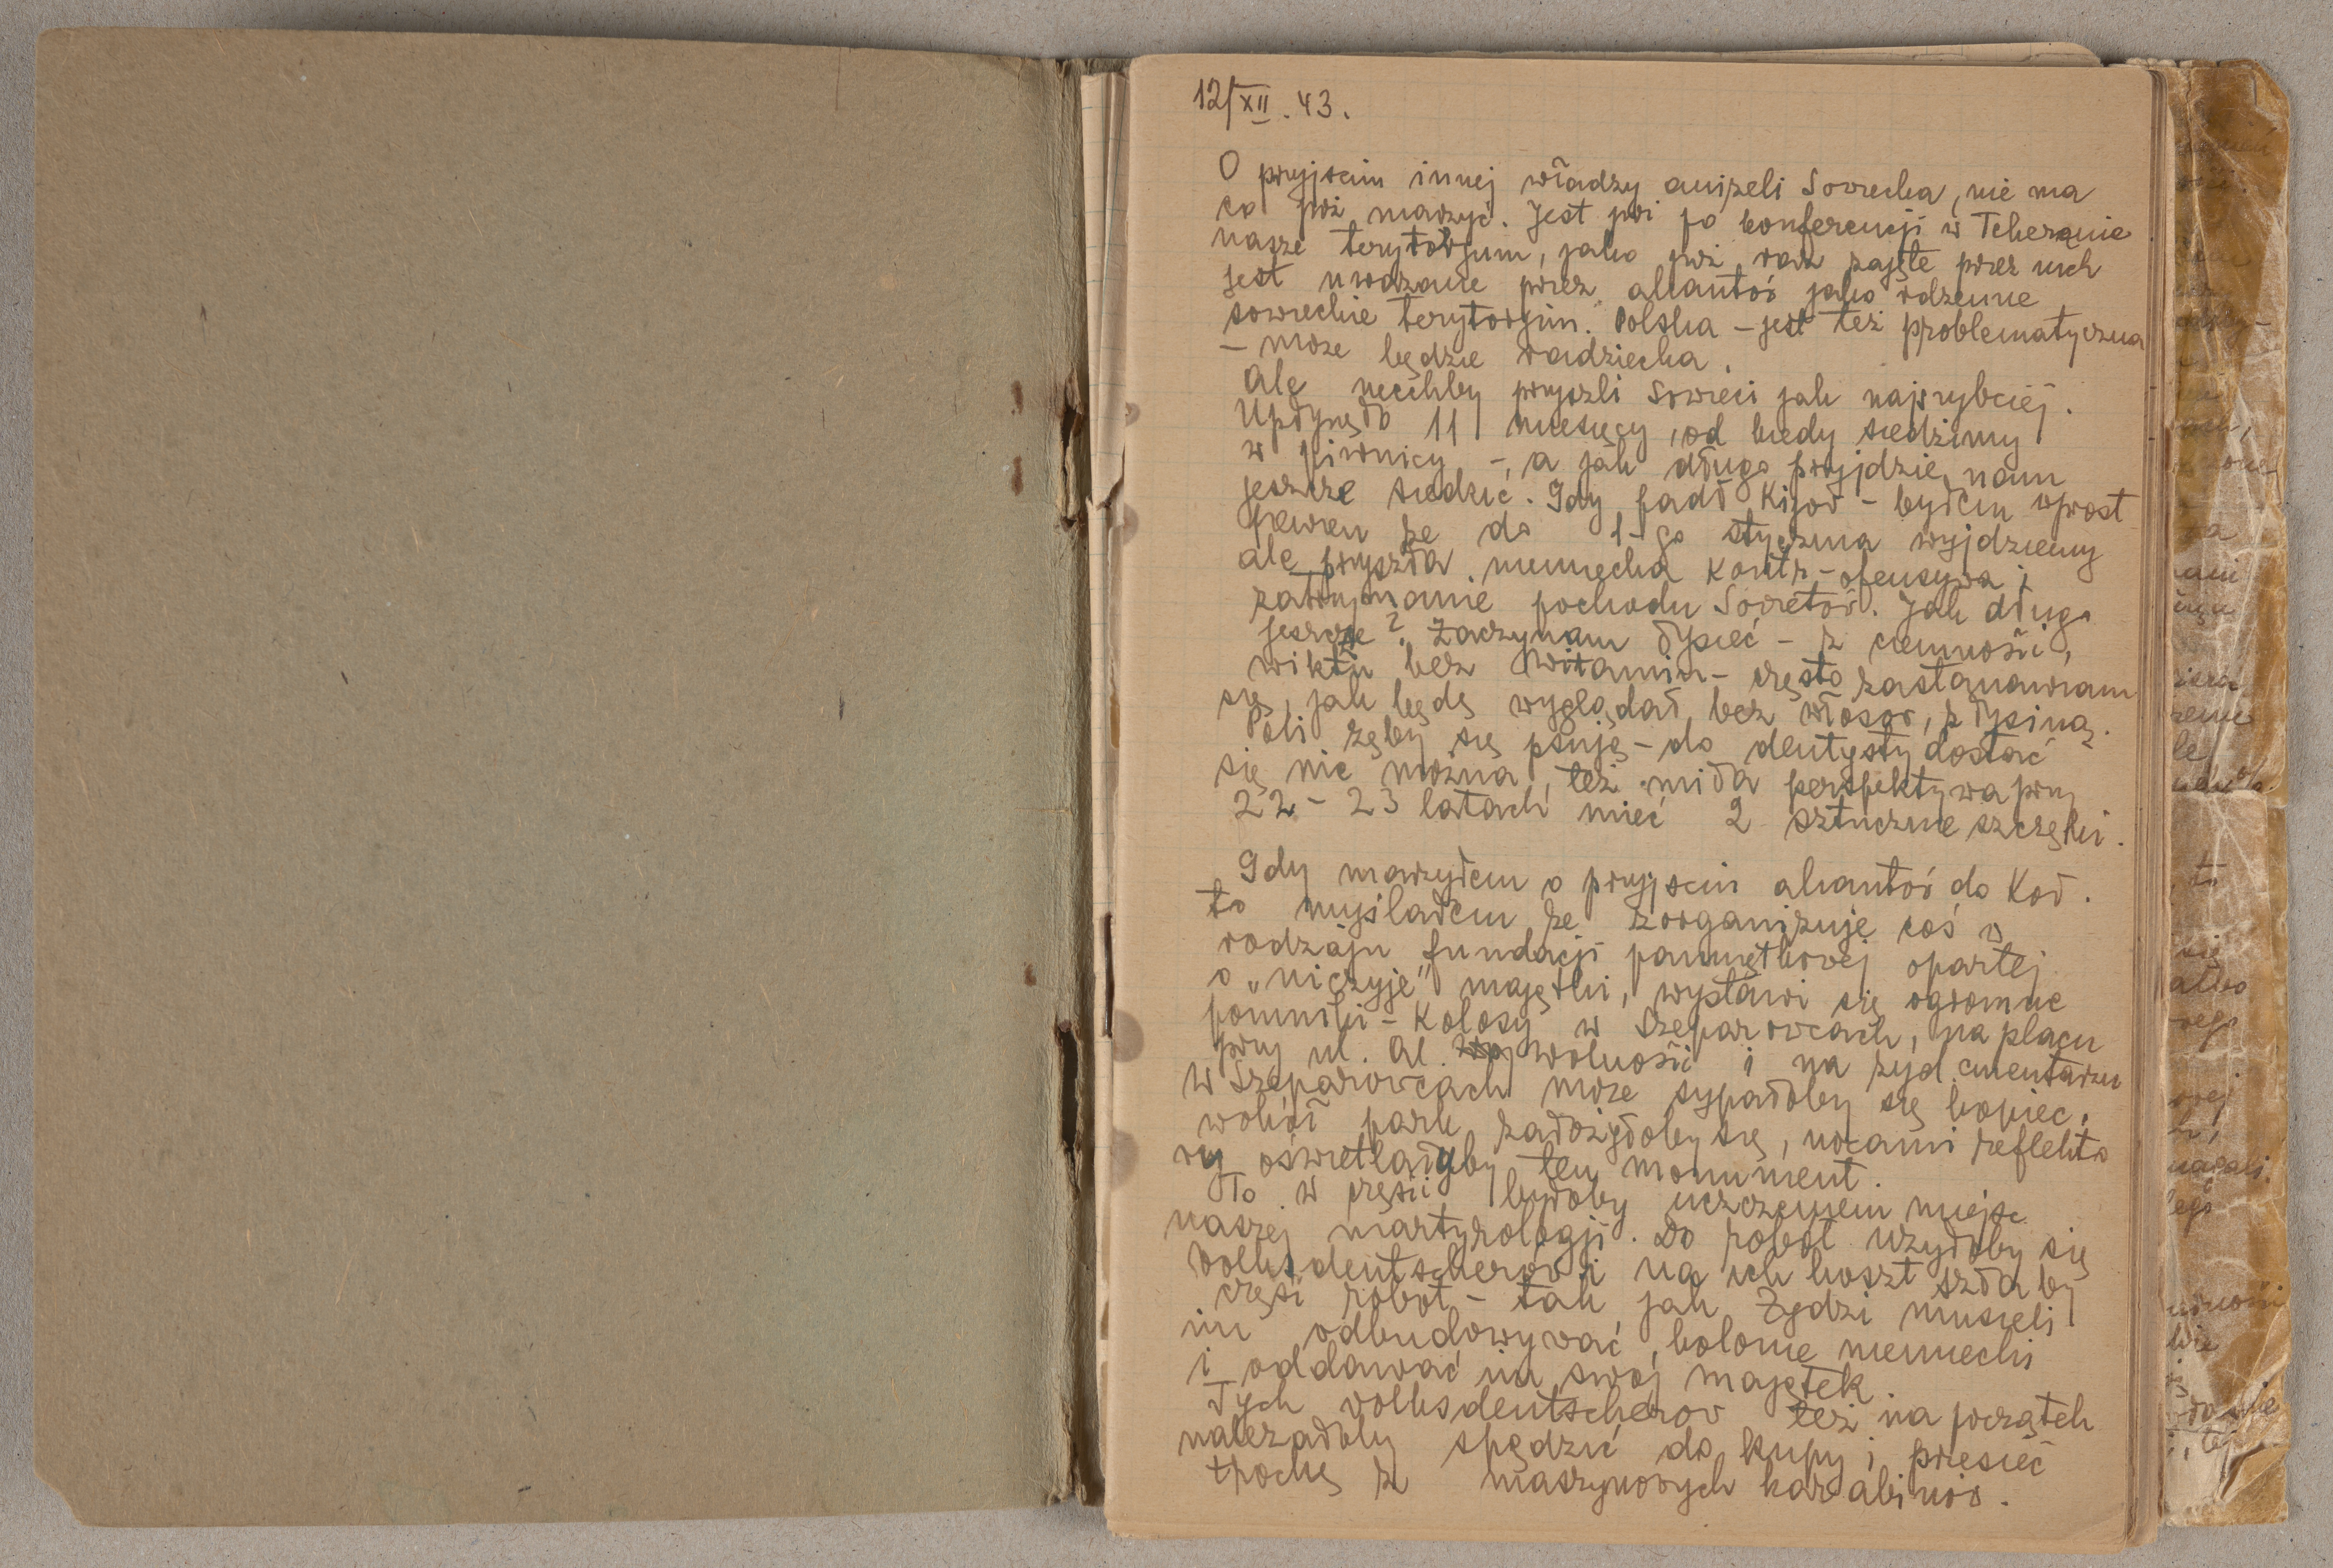 12/XII. 43.
O przyjściu innej władzy aniżeli Sowiecka, nie ma
co już marzyć. Jest już po konferencji w Teheranie
nasze terytorjum, jako już raz zajęte przez nich
jest uważane przez aliantów jako rdzenne
sowieckie terytorjum. Polska – jest też problematyczna
– może będzie radziecka.
Ale niechby przyszli Sowieci jak najszybciej.
Upłynęło 11 miesięcy, od kiedy siedzimy
w piwnicy –, a jak długo przyjdzie nam
jeszcze siedzieć. Gdy padł Kijów – byłem wprost
pewien że do 1-go stycznia wyjdziemy
ale przyszła niemiecka kontr-ofensywa i
zatrzymanie pochodu Sowietów. Jak długo
jeszcze? Zaczynam łysieć – z ciemności,
wiktu bez witamin – często zastanawiam
się, jak będę wyglądał bez włosów, z łysiną.
Poli zęby się psuję – do dentysty dostać
się nie można, też miła perspektywa przy
22 – 23 latach mieć 2 sztuczne szczęki.
Gdy marzyłem o przyjściu aliantów do Koł.
to myślałem, że zorganizuję coś w
rodzaju fundacji pamiętkowej opartej
o „niczyje” majątki, wystawi się ogromne
pomniki – kolosy w Szeparowcach, na placu
przy ul. Al. Wolności i na żyd. cmentarzu
W Szeparowcach może sypałoby się kopiec,
wokół park załóżyłoby się, nocami reflekto
ry oświetlałyby ten monument.
To w części byłoby uczczeniem miejsc
naszej martyrologji. Do robót użyłoby się
volksdeutscherów i na ich koszt szłaby
część robót – tak jak Żydzi musieli
im odbudowywać kolonie niemiecki
i oddawać im swój majątek.
Tych volksdeutscherów też na początek
należałoby spędzić do kupy i przesieć
trochę z maszynowych karabinów.